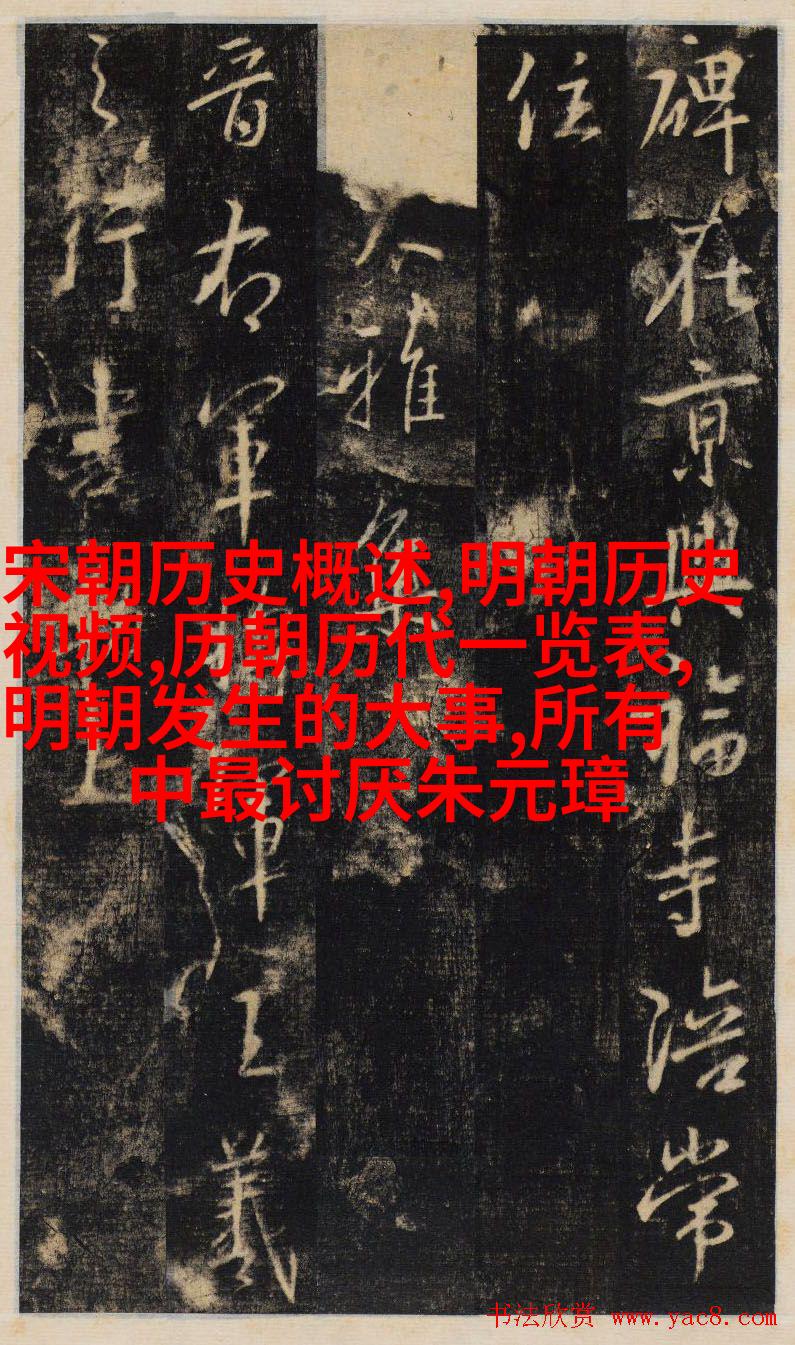 碑在京興福寺陪常
住
大雅集
晋右軍將軍王羲
之行書上
宋朝历史概述,明朝历史
视频,历朝历代一览表,
明朝发生的大事,所有
中最讨厌朱元璋
书法欣赏 www.yac8.com